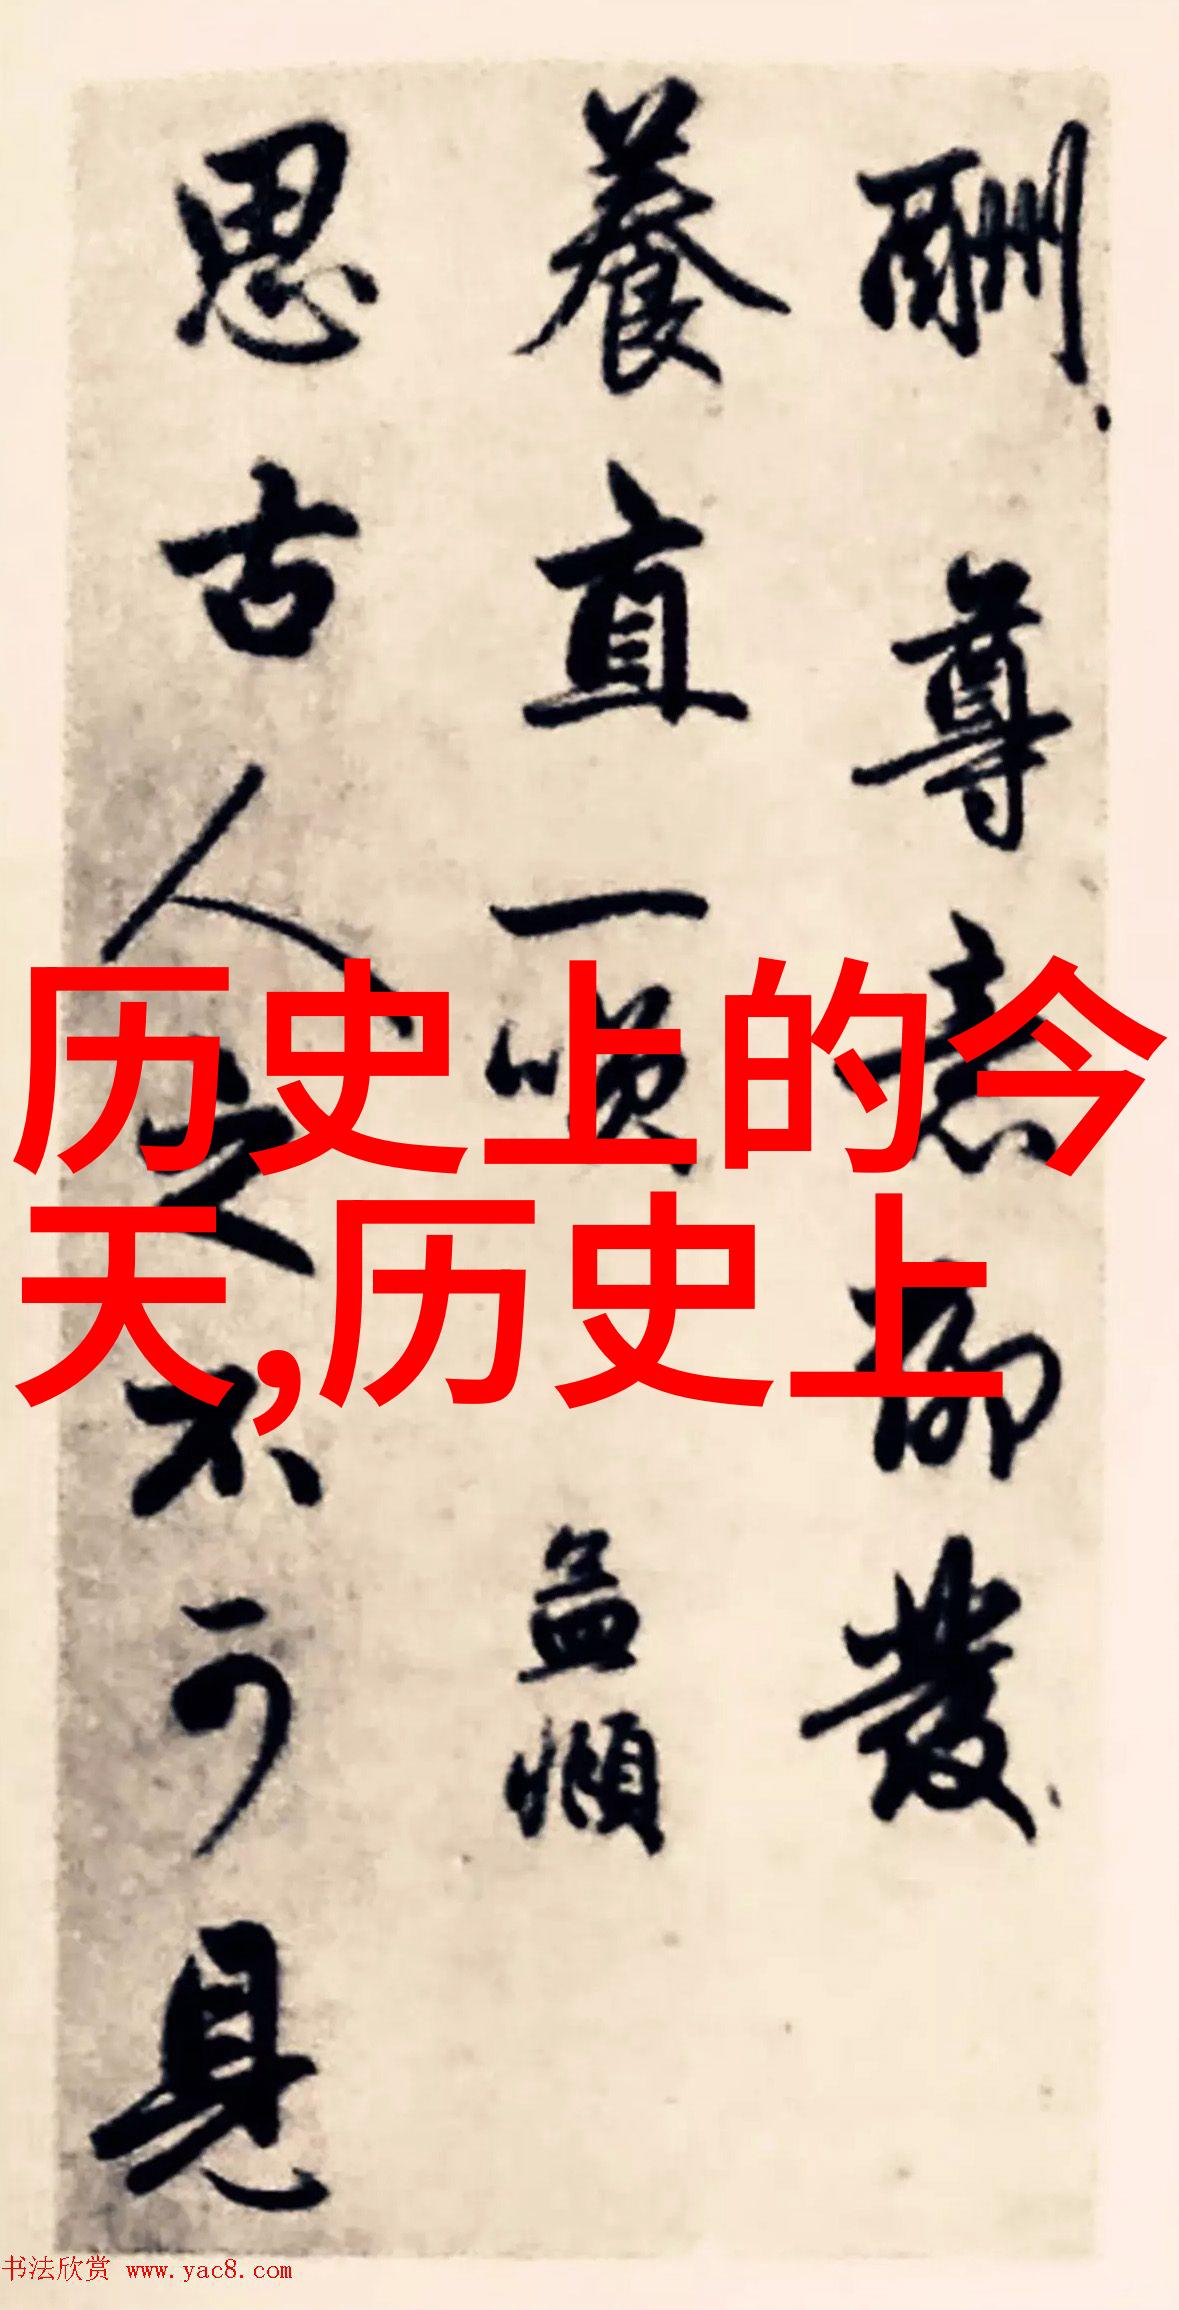 酬尊意聊發
養直一 孟頫
思古人之不可見
历史上的今
天,历史上
书法欣赏 www.yac8.com